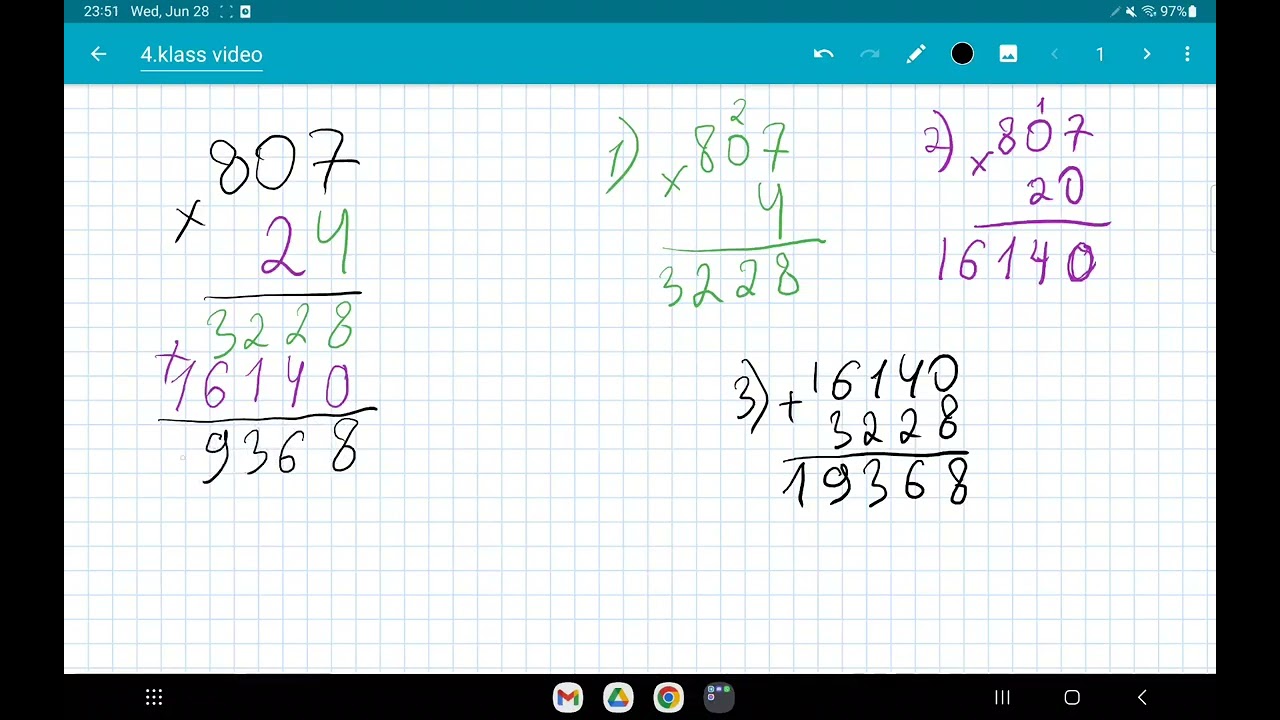 23:51 Wed, Jun 28
97%
4.klass video
1
807
x
24
3228
+
16140
9368
1)
2
807
x 4
3228
2)
1
x 807
20
16140
3)
+ 16140
3228
19368